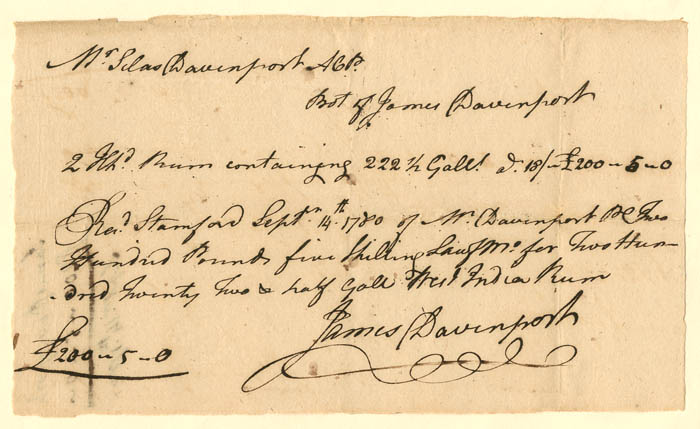 Mr Silas Davenport ACP.
Bot of James Davenport
2 Hhd Rum containing 222 ½ Galls @ 18/ - £200 - 5 - 0
Recd Stamford Septm 14th 1780 of Mr. Davenport PC Two
Hundred Pounds five Shilling Lawf Mo for Two Hun-
-dred Twenty Two & half Gall West India Rum
James Davenport
£200 - 5 - 0